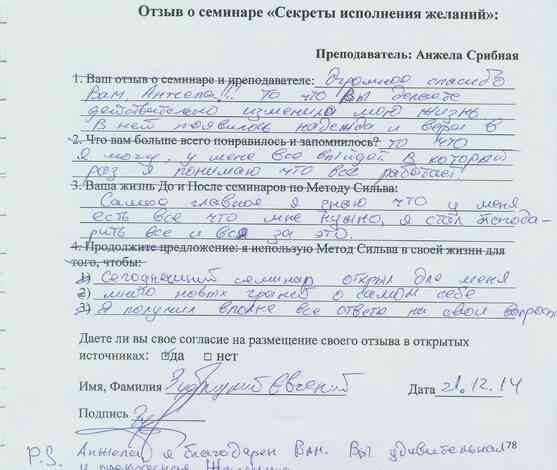 Отзыв о семинаре «Секреты исполнения желаний»:
Преподаватель: Анжела Срибная
1. Ваш отзыв о семинаре и преподавателе: Огромное спасибо
Вам, Анжела!!! То что Вы делаете
действительно изменило мою жизнь.
В ней появилась надежда и вера в
2. Что вам больше всего понравилось и запомнилось? то что
я могу, у меня все выйдет. В который
раз я понимаю что все работает!
3. Ваша жизнь До и После семинаров по Методу Сильва:
Самое главное я знаю что у меня
есть все что мне нужно, я стал благода-
рить все и вся за это.
4. Продолжите предложение: я использую Метод Сильва в своей жизни для
того, чтобы:
1) Сегодняшний семинар открыл для меня
2) много новых граней о самом себе
3) Я получил вполне все ответы на свои вопросы
Даете ли вы свое согласие на размещение своего отзыва в открытых
источниках: да нет
Имя, Фамилия Евгений
Дата 21.12.14
Подпись
78
P.S. Анжела я благодарен Вам. Вы удивительная
и